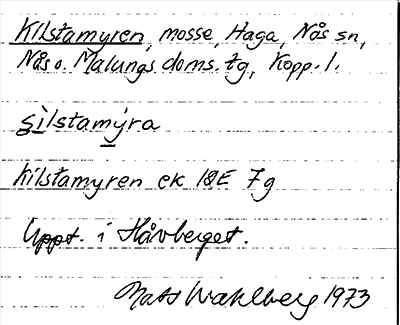 Kilstamyren, mosse, Haga, Nås sn,
Nås o. Malungs doms. tg, Kopp. l.
s̲ìlstamý̲ra
Kilstamyren ek 12E 7g
Uppt. i Håvberget.
Mats Wahlberg 1973